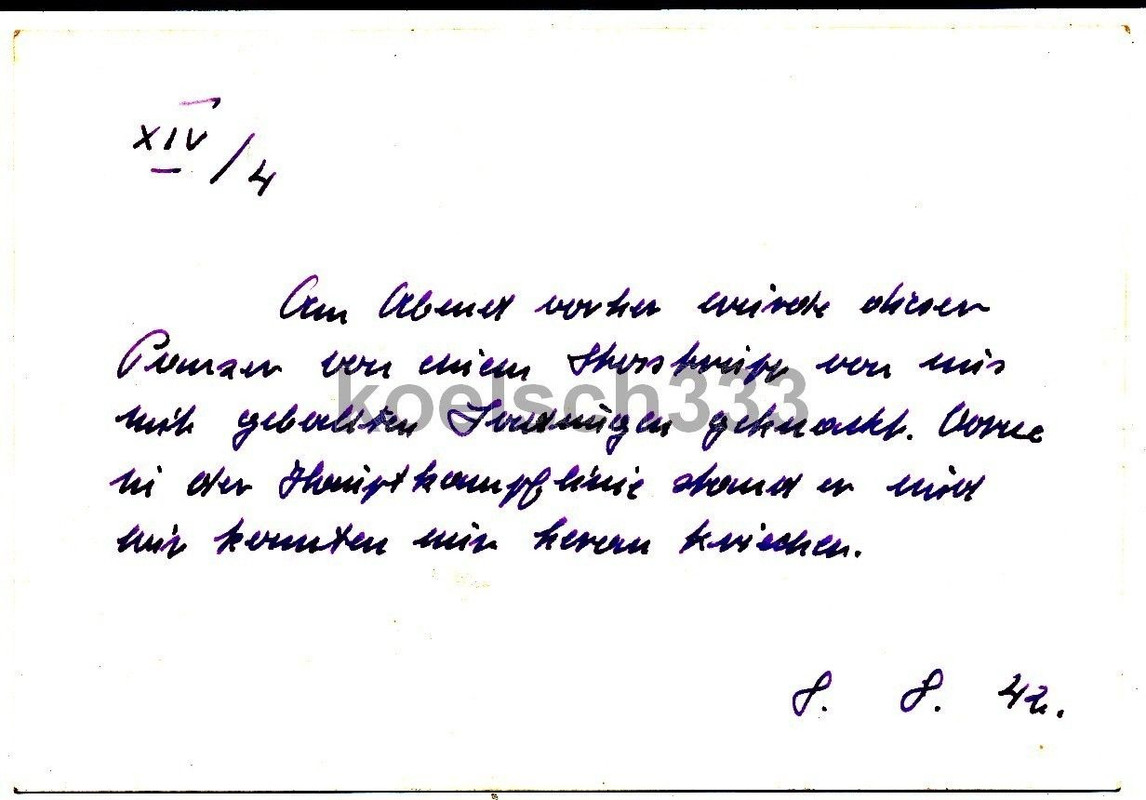 XIV/4
Am Abend vorher wurde dieser
Panzer von einem Stosstrupp von uns
mit geballten Ladungen geknackt. Vorne
in der Hauptkampflinie stand er und
wir konnten nur heran kriechen.
8. 8. 42.
koelsch333